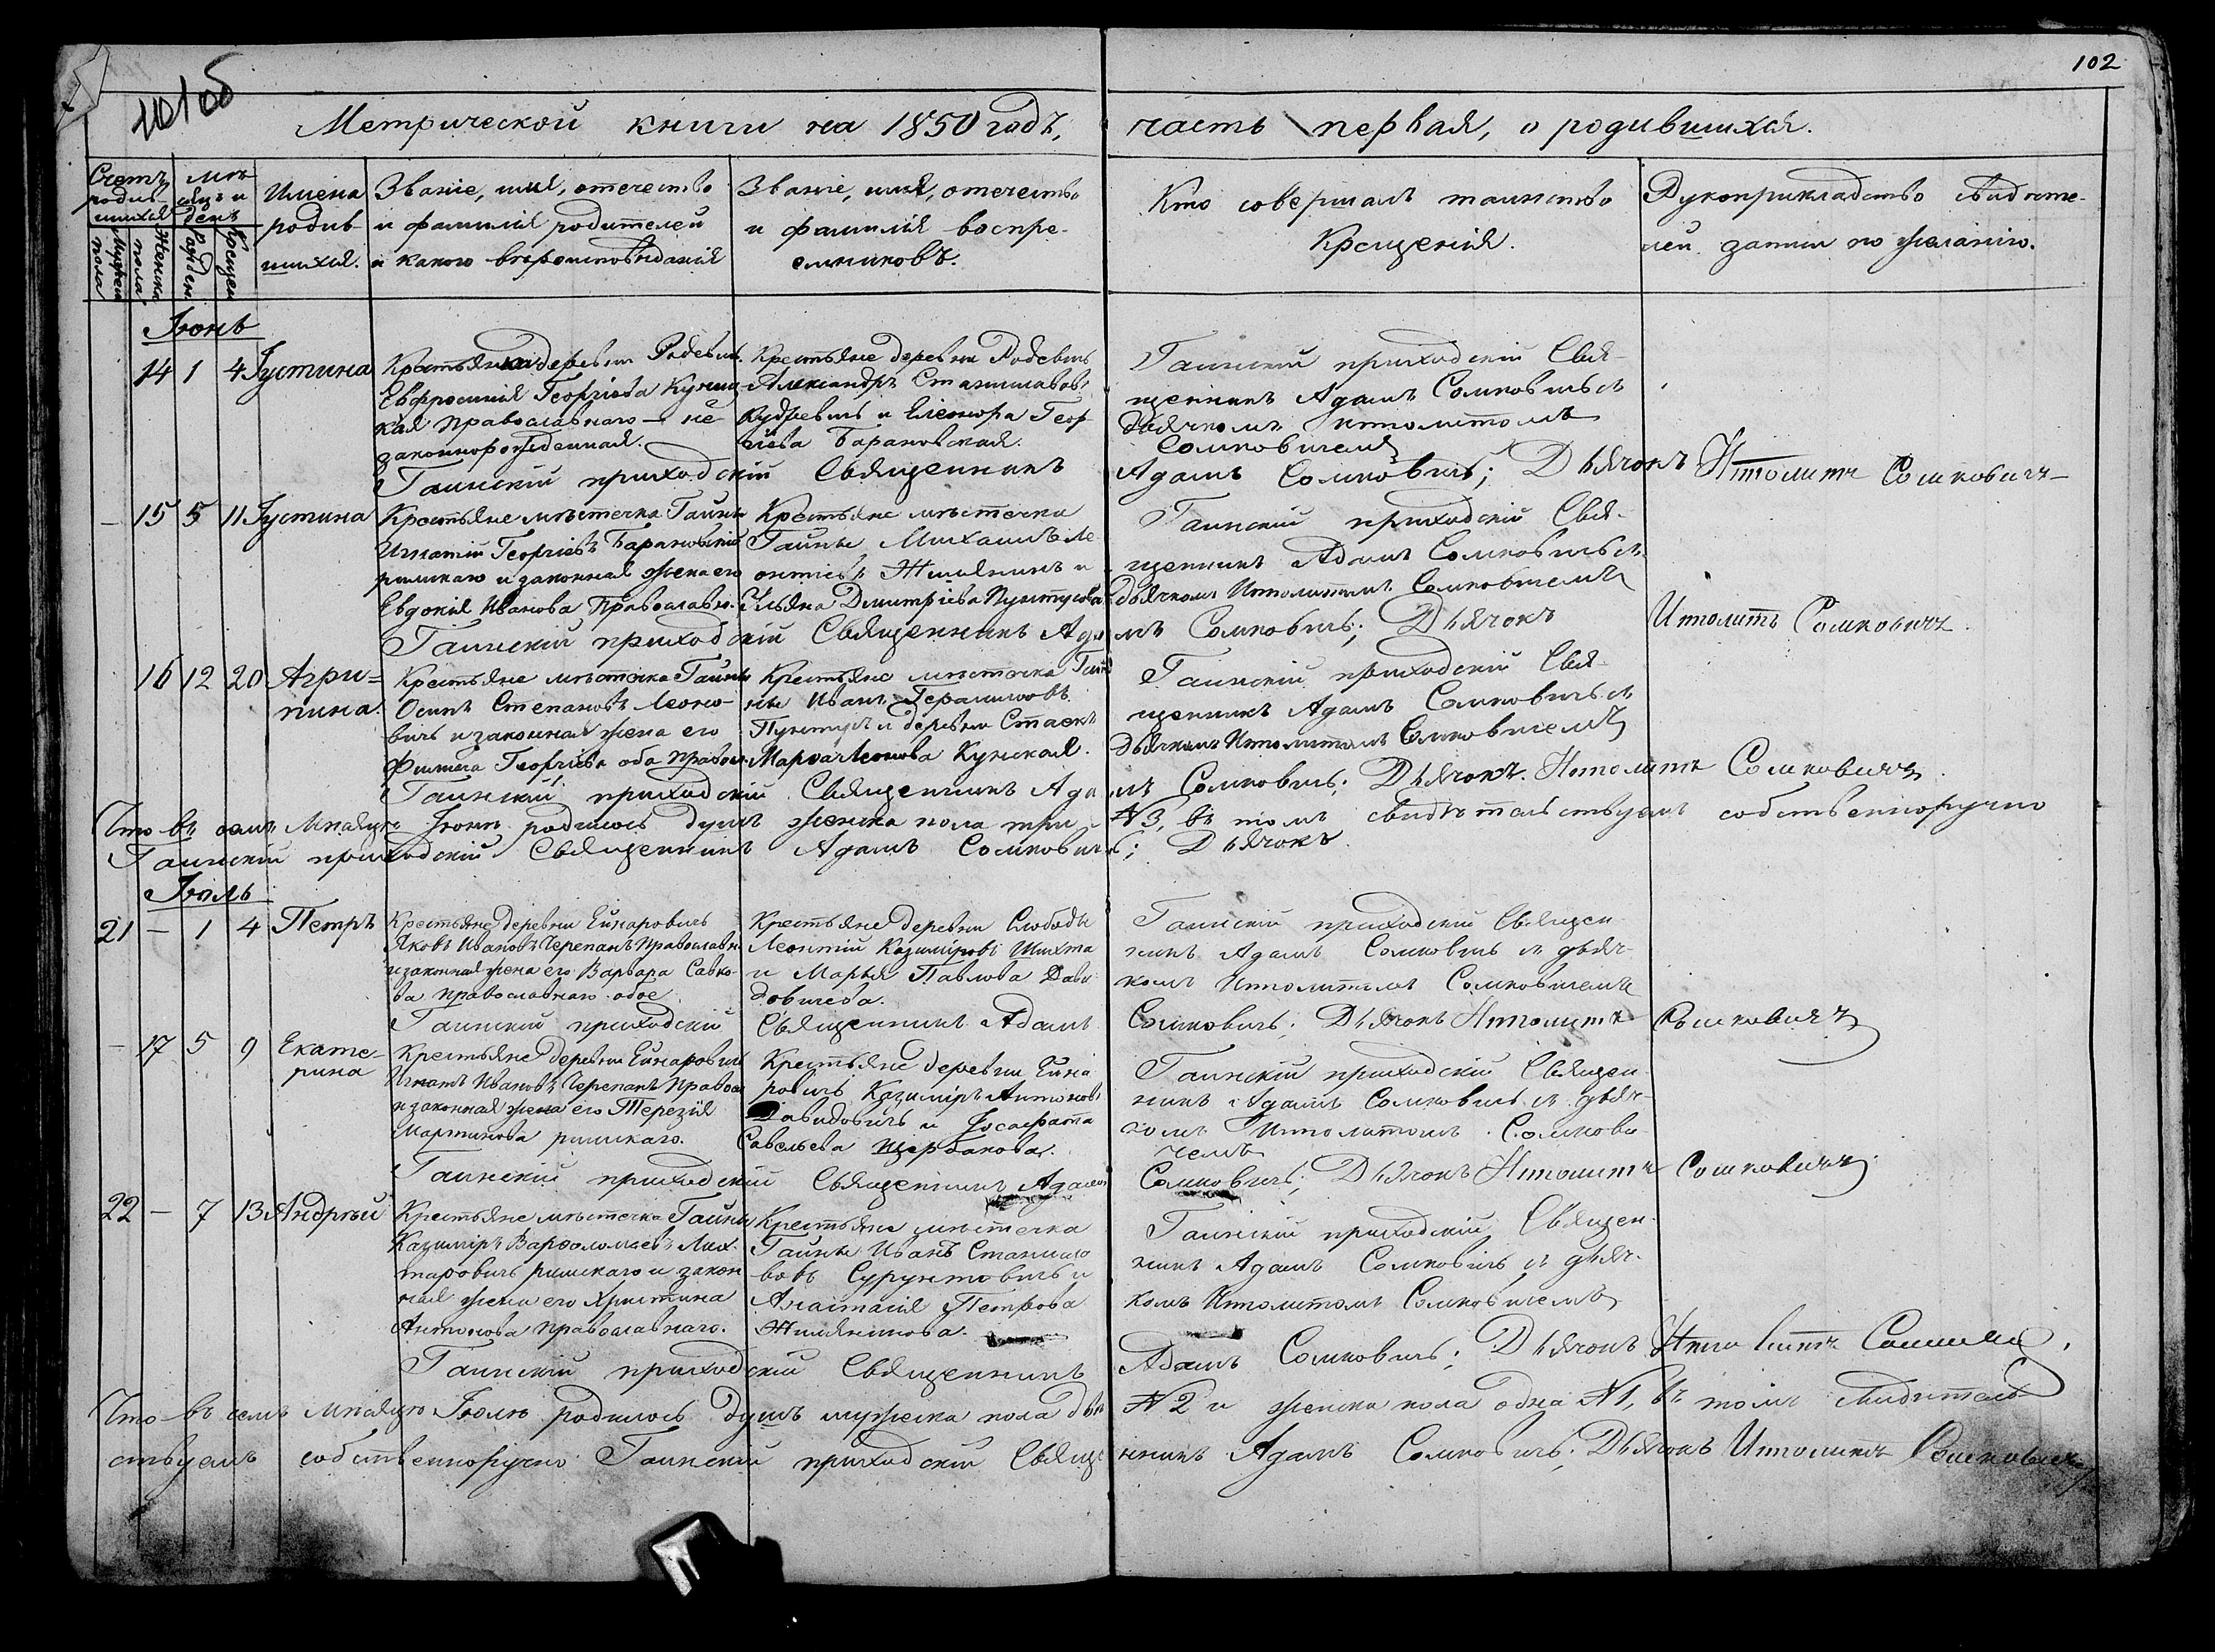 101об
102
Метрической книги на 1850 годъ, часть первая, о родившихся.
Счетъ родив-шихся
Мужеска пола
Женска пола
Мѣсяцъ и день
Рожден.
Крещен.
Имена родив-шихся.
Званіе, имя, отечество
и фамилія родителей
и какого вѣроисповѣданія
Званіе, имя, отечество
и фамилія воспре-
емниковъ.
Кто совершалъ таинство
Крещенія.
Рукоприкладство свидѣте-
лей записи по желанію.
Іюнь
14 1 4 Іустина
Крестьянка деревни
Евфросинія Георгіева
кая православнаго – не-
законнорожденная.
Крестьяне деревни
Александръ Станиславовъ
Кудревичъ и Елеонора Геор
гіева Барановская.
Гаинскій приходскій Свя-
щенникъ Адамъ Сомковичъ съ
дьячкомъ Ипполитомъ
Сомковичемъ
Гаинскій приходскій Священникъ Адамъ Сомковичъ; Дьячокъ Ипполитъ Сомковичъ
– 15 5 11 Іустина
Крестьяне мѣстечка Гайны
Игнатій Георгіевъ Барановскій
римскаго и законная жена его
Евдокія Иванова Православн.
Крестьяне мѣстечка
Гайны Михаилъ Ле
онтіевъ Жилянинъ и
Ульяна Димитріева
Гаинскій приходскій Свя-
щенникъ Адамъ Сомковичъ съ
дьячкомъ Ипполитомъ Сомковичемъ
Гаинскій приходскій Священникъ Адамъ Сомковичъ; Дьячокъ Ипполитъ Сомковичъ.
16 12 20 Агри=
пина.
Крестьяне мѣстечка Гайны
Осипъ Степановъ Леоно-
вичъ и законная жена его
Георгіева оба Правосл.
Крестьяне мѣстечка Гай
ны Иванъ Герасимовъ
и деревни
Марѳа Леонова
Гаинскій приходскій Свя-
щенникъ Адамъ Сомковичъ съ
дьячкомъ Ипполитомъ Сомковичемъ
Гаинскій приходскій Священникъ Адамъ Сомковичъ; Дьячокъ Ипполитъ Сомковичъ
Что въ семъ Мѣсяцѣ Іюнѣ родилось душъ женска пола три N 3, въ томъ свидѣтельствуемъ собственноручно
Гаинскій приходскій Священникъ Адамъ Сомковичъ; Дьячокъ
Іюль
21 – 1 4 Петръ
Крестьяне деревни Ейнаровичъ
Яковъ Ивановъ Черепанъ Православн.
и законная жена его Варвара Савко-
ва православнаго обое.
Крестьяне деревни Слободы
Леонтій Казиміровъ Шихта
и Марья Павлова Дави
довичева.
Гаинскій приходскій Священ
никъ Адамъ Сомковичъ съ дьяч-
комъ Ипполитомъ Сомковичемъ
Гаинскій приходскій Священникъ Адамъ Сомковичъ; Дьячокъ Ипполитъ Сомковичъ
– 17 5 9 Екате-
рина
Крестьяне деревни Ейнаровичъ
Игнатъ Ивановъ Черепанъ Правосл
и законная жена его Терезія
Мартинова римскаго.
Крестьяне деревни Ейна
ровичъ Казиміръ Антоновъ
Давидовичъ и Іосафата
Савельева Щербакова.
Гаинскій приходскій Священ
никъ Адамъ Сомковичъ съ дьяч-
комъ Ипполитомъ Сомкови
чемъ
Гаинскій приходскій Священникъ Адамъ Сомковичъ; Дьячокъ Ипполитъ Сомковичъ
22 – 7 13 Андрѣй
Крестьяне мѣстечка Гайны
Казиміръ Варѳоломеевъ Лих-
таровичъ римскаго и закон
ная жена его Христина
Антонова православнаго.
Крестьяне мѣстечка
Гайны Иванъ Станисла
вовъ Сурунтовичъ и
Анастасія Петрова
Жилянинова.
Гаинскій приходскій Священ-
никъ Адамъ Сомковичъ съ дьяч-
комъ Ипполитомъ Сомковичемъ
Гаинскій приходскій Священникъ Адамъ Сомковичъ; Дьячокъ Ипполитъ
Что въ семъ Мѣсяцѣ Іюлѣ родилось душъ мужеска пола два N 2 и женска пола одна N 1, въ томъ свидѣтель-
ствуемъ собственноручно Гаинскій приходскій Священникъ Адамъ Сомковичъ; Дьячокъ Ипполитъ Сомковичъ